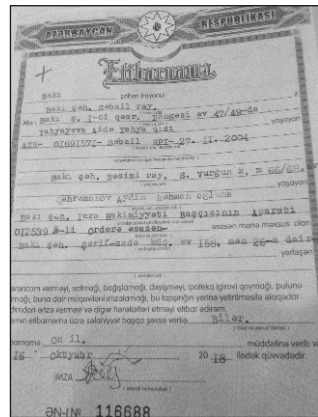 AZƏRBAYCAN RESPUBLİKASI
Etibarnamə
Bakı şəhəri
Mən, Bakı şəh. Səbail ray.
Bakı ş. I-ci qəsr, döngəsi ev 47/49-da
Yahyayeva Aidə Yahya qızı yaşayan
AZE- 01691571- Səbail RPI- 27. II. 2004
Bakı şəh. Nəsimi ray, S. Vurğun k, m 66/68, ev
yaşayan
Qəhrəmanov Aydın Rəhman oğluna
Bakı şəh. İcra Hakimiyyəti Başçısının Aparatı
012539 №-li orderə əsasən əsasən mənə məxsus olan
Bakı şəh. Şərifzadə küç. ev 168, mən 26-a dair
yerləşən
verməyi, satmağı, bağışlamağı, dəyişməyi, ipoteka girov qoymağı, pulunu
almağı, buna dair müqaviləni imzalamağı, bu tapşırığın yerinə yetirilməsilə əlaqədar
ərizə verməyi və digər hərəkətləri etməyi etibar edirəm.
etibarnamə üzrə səlahiyyət başqa şəxsə verilə Bilər.
On il. müddətinə verilib və
16 oktyabr 20 18 -ilədək qüvvədədir.
İMZA
ƏN-I № 116688